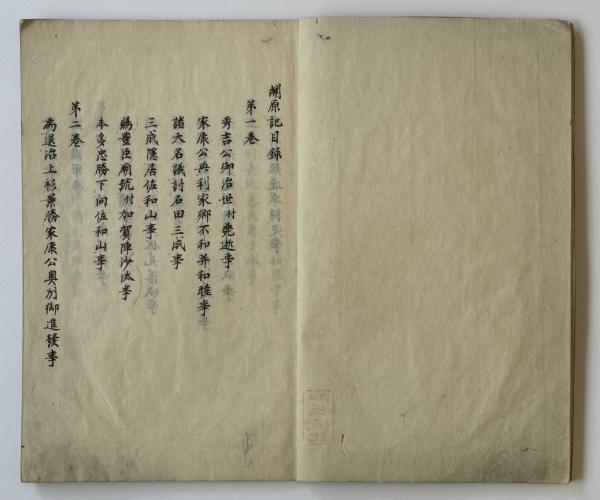 関原記目録
第一巻
秀吉公御治世付薨逝事
家康公与利家卿不和并和睦事
諸大名議討石田三成事
三成隠居佐和山事
賜豊臣廟號付加賀陣沙汰事
本多忠勝下向佐和山事
第二巻
為退治上杉景勝家康公奥州御進發事